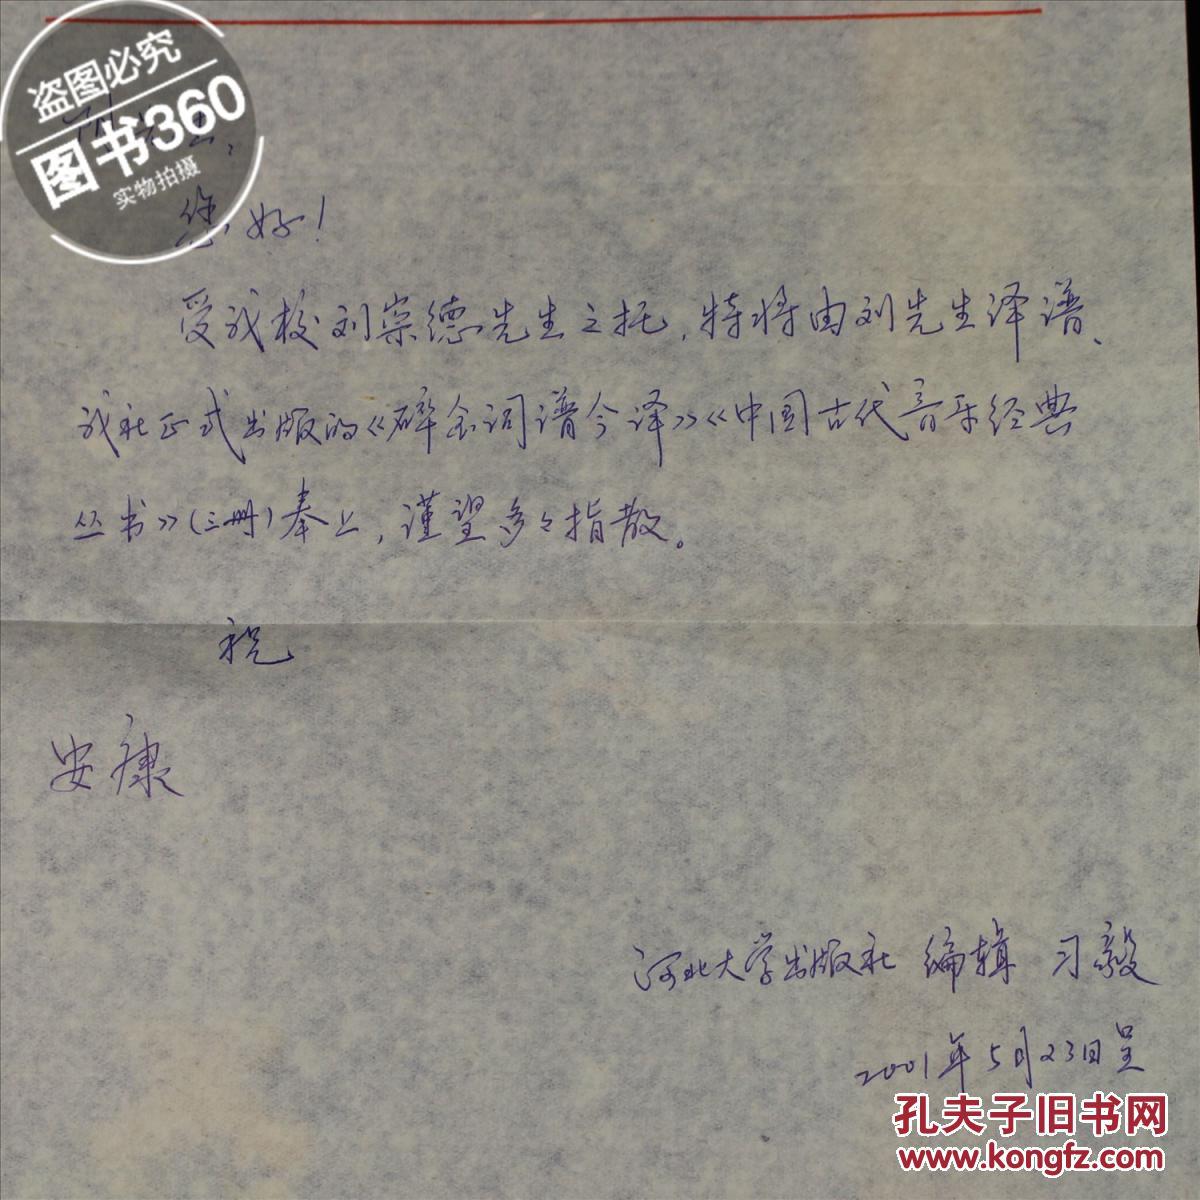 盗图必究
图书360
实物拍摄
您好！
受我校刘崇德先生之托，特将由刘先生译谱、
我社正式出版的《碎金词谱今译》《中国古代音乐经典
丛书》（三册）奉上，谨望多多指教。
祝
安康
河北大学出版社 编辑 习毅
2001年5月23日呈
孔夫子旧书网
www.kongfz.com